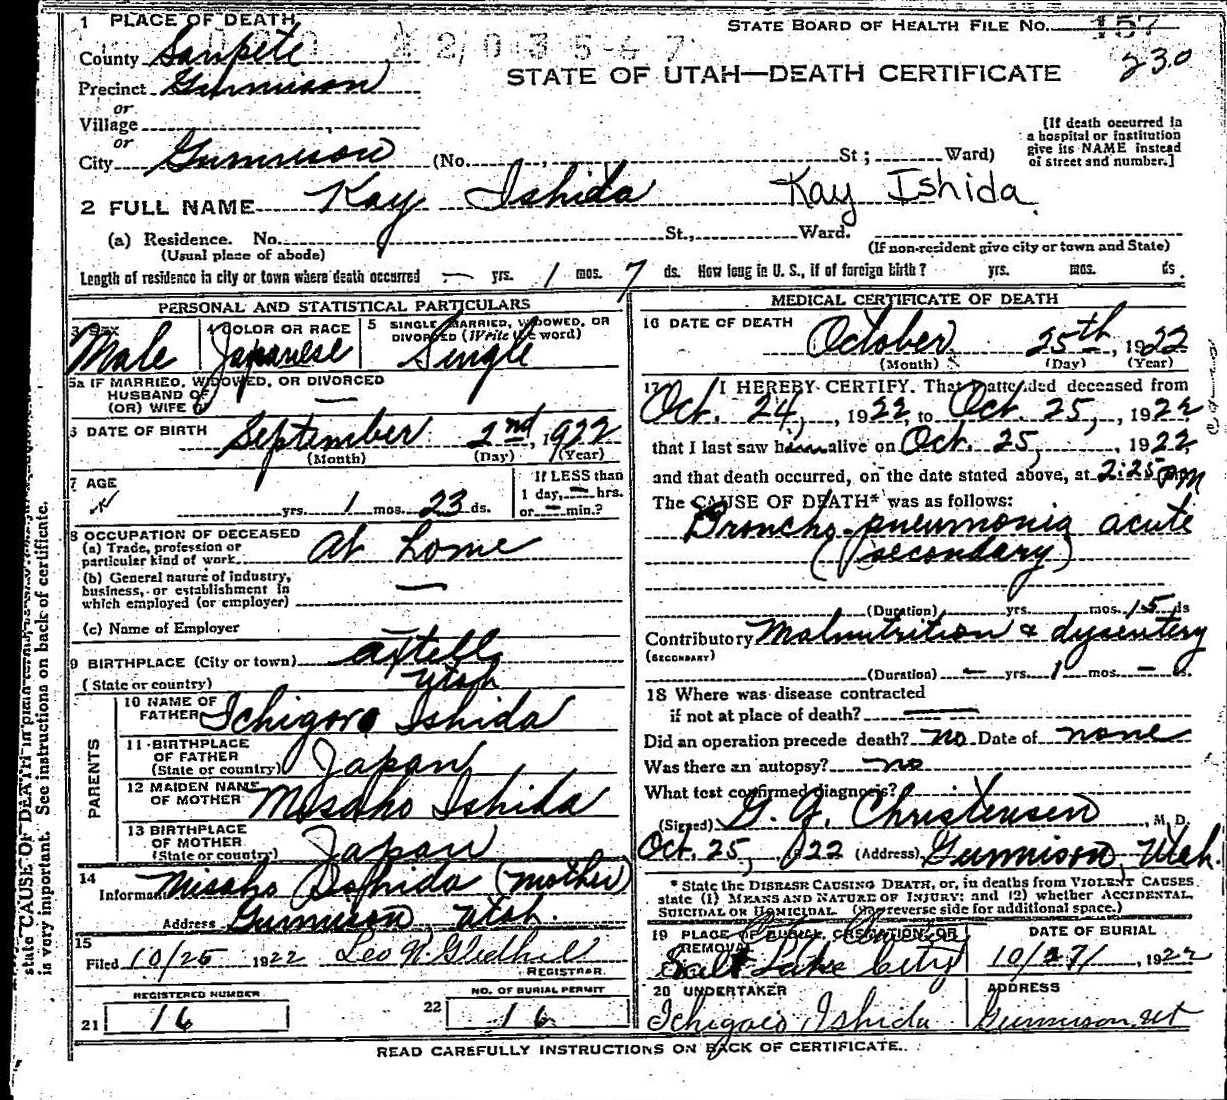 1 PLACE OF DEATH
STATE BOARD OF HEALTH FILE No. 157
230
County Sanpete
STATE OF UTAH—DEATH CERTIFICATE
Precinct Gunnison
or
Village
or
City Gunnison (No. St; Ward)
[If death occurred in a hospital or institution give its NAME instead of street and number.]
2 FULL NAME Kay Ishida Kay Ishida
(a) Residence. No. St., Ward.
(Usual place of abode) (If non-resident give city or town and State)
Length of residence in city or town where death occurred — yrs. 1 mos. 7 ds. How long in U. S., if of foreign birth? yrs. mos. ds.
PERSONAL AND STATISTICAL PARTICULARS
3 SEX Male
COLOR OR RACE Japanese
5 SINGLE, MARRIED, WIDOWED, OR DIVORCED (Write the word) Single
5a IF MARRIED, WIDOWED, OR DIVORCED
HUSBAND OF
(OR) WIFE OF —
6 DATE OF BIRTH September 2nd, 1922
(Month) (Day) (Year)
7 AGE
yrs. 1 mos. 23 ds.
If LESS than
1 day, — hrs.
or — min.?
8 OCCUPATION OF DECEASED
(a) Trade, profession or
particular kind of work at home
(b) General nature of industry,
business, or establishment in
which employed (or employer) —
(c) Name of Employer —
9 BIRTHPLACE (City or town) Axtell
(State or country) Utah
PARENTS
10 NAME OF
FATHER Ichigoro Ishida
11 BIRTHPLACE
OF FATHER
(State or country) Japan
12 MAIDEN NAME
OF MOTHER Misaho Ishida
13 BIRTHPLACE
OF MOTHER
(State or country) Japan
14
Informant Misaho Ishida (mother)
Address Gunnison, Utah.
15
Filed 10/25 1922 Leo N. Gledhill
REGISTRAR.
REGISTERED NUMBER
21 16
NO. OF BURIAL PERMIT
22 16
MEDICAL CERTIFICATE OF DEATH
16 DATE OF DEATH October 25th, 1922
(Month) (Day) (Year)
17 I HEREBY CERTIFY. That I attended deceased from
Oct. 24, 1922, to Oct. 25, 1922
that I last saw him alive on Oct. 25, 1922
and that death occurred, on the date stated above, at 2:25 PM
The CAUSE OF DEATH* was as follows:
Broncho-pneumonia acute
(secondary)
(Duration) yrs. mos. 15 ds
Contributory Malnutrition & dysentery
(SECONDARY)
(Duration) — yrs. 1 mos. — ds.
18 Where was disease contracted
if not at place of death? —
Did an operation precede death? no Date of none
Was there an autopsy? no
What test confirmed diagnosis?
(Signed) G. J. Christensen, M. D.
Oct. 25, 1922 (Address) Gunnison, Utah.
* State the DISEASE CAUSING DEATH, or, in deaths from VIOLENT CAUSES
state (1) MEANS AND NATURE OF INJURY; and (2) whether ACCIDENTAL,
SUICIDAL OR HOMICIDAL. (See reverse side for additional space.)
19 PLACE OF BURIAL, CREMATION, OR
REMOVAL
Salt Lake City
DATE OF BURIAL
10/27/ 1922
20 UNDERTAKER
Ichigoro Ishida
ADDRESS
Gunnison. Ut
READ CAREFULLY INSTRUCTIONS ON BACK OF CERTIFICATE.
state CAUSE OF DEATH in plain
is very important. See instructions on back of certificate.